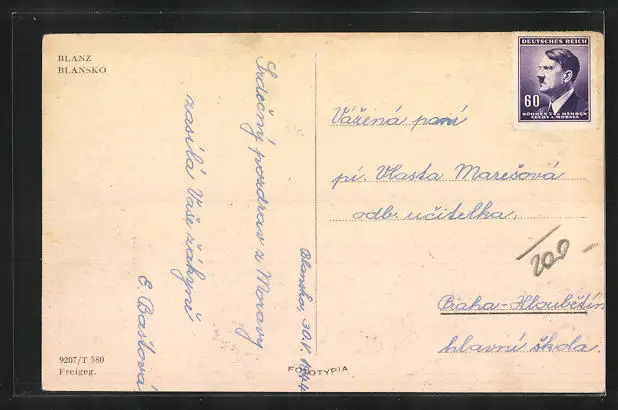 BLANZ
BLANSKO
Srdečný pozdrav z Moravy
zasílá Vaše žákyně
E. Bastová
Blansko, 30.V. 1944
9207/T 580
Freigeg.
FOTOTYPIA
DEUTSCHES REICH
60
BÖHMEN UND MÄHREN
ČECHY A MORAVA
Vážená paní
pí. Vlasta Marešová
odb. učitelka.
200 -
Praha-Hloubětín
hlavní škola.